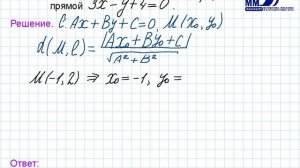 прямой 3x-y+4=0.
Решение. ℓ: Ax+By+C=0, M(x₀, y₀)
d(M, ℓ) = |Ax₀+By₀+C| / √(A²+B²)
M(-1, 2) ⇒ x₀=-1, y₀=
Ответ: